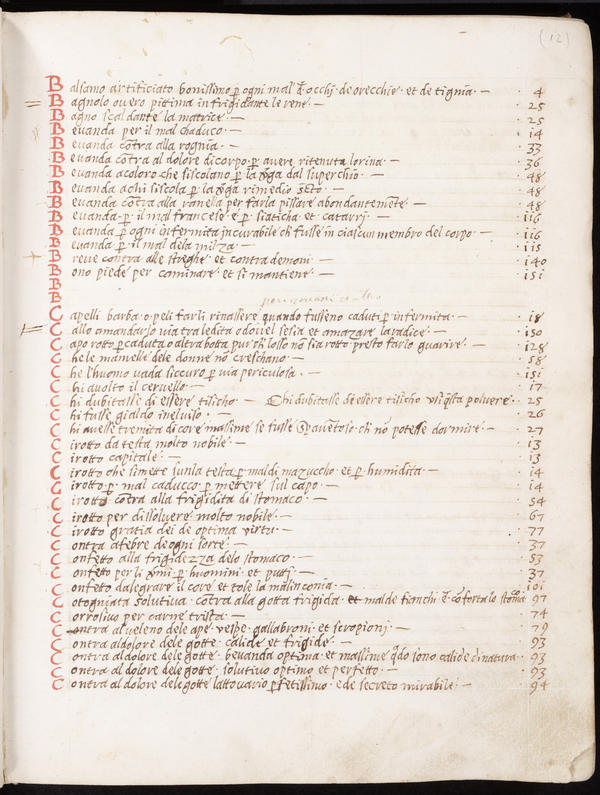 (12)
Balsamo artificiato bonissimo p ogni mal d occhi de orecchie et de tignia 4
Bagnolo overo pittima infrigidante le rene 25
Bagno scaldante la matrice 25
Bevanda per il mal chaduco 14
Bevanda contra alla rognia 33
Bevanda contra al dolore di corpo p avere ritenuta lorina 36
Bevanda acoloro che si scolano p la vga dal superchio 48
Bevanda achi si scola p la vga rimedio 48
Bevanda contra alla ranella per farla pissare abondantemente 48
Bevanda p il mal francese e p siaticha et catarri 116
Bevanda p ogni infermita incurabile ch fusse in ciascun membro del corpo 116
Bevanda p il mal dela milza 115
Breve contra alle streghe et contra demoni 140
Bono piede per caminare et si mantiene 151
B
B
Capelli barba o peli farli rinassere quando fusseno caduti p infermita 18
Callo amandarlo via tra le dita o dovel se sia et amazare la radice 150
Capo rotto p caduta o altra botta pur ch losso no sia rotto presto farlo guarire 128
Che le mamelle dele donne no creschano 58
Che l'huomo vada siccuro p via periculosa 151
Chi a volto il cervello 17
Chi dubitasse di essere tisicho Chi dubitasse de essere tisicho usi qsta polvere 25
Chi fusse gialdo inelviso 26
Chi avesse tremita di core massime se fusse spaventoso ch no potesse dormire 27
Cirotto da testa molto nobile 13
Cirotto capitale 13
Cirotto che si mette sunla testa p mal di mazuccho et p humidita 14
Cirotto p mal caducco p mettere sul capo 14
Cirotto contra alla frigidita di stomaco 54
Cirotto per dissolvere molto nobile 67
Cirotto gratia dei de optima virtu 77
Contra afebre de ogni sorte 37
Confetto alla frigidezza delo stomaco 53
Confetto per li vmi p huomini et putti 37
Confetto dalegrare il core et tole la malinconia 101
Cotogniata solutiva contra alla gotta frigida et mal de fianchi e conforta lo stoma 97
Corrosivo per carne trista 74
Contra al veleno dele ape vespe gallabroni et scropioni 79
Contra al dolore dele gotte calide et frigide 93
Contra al dolore dele gotte bevanda optima et massime qdo sono calide di natura 93
Contra al dolore dele gotte solutivo optimo et perfetto 93
Contra al dolore dele gotte lattovario pfetissimo e de secreto mirabile 94